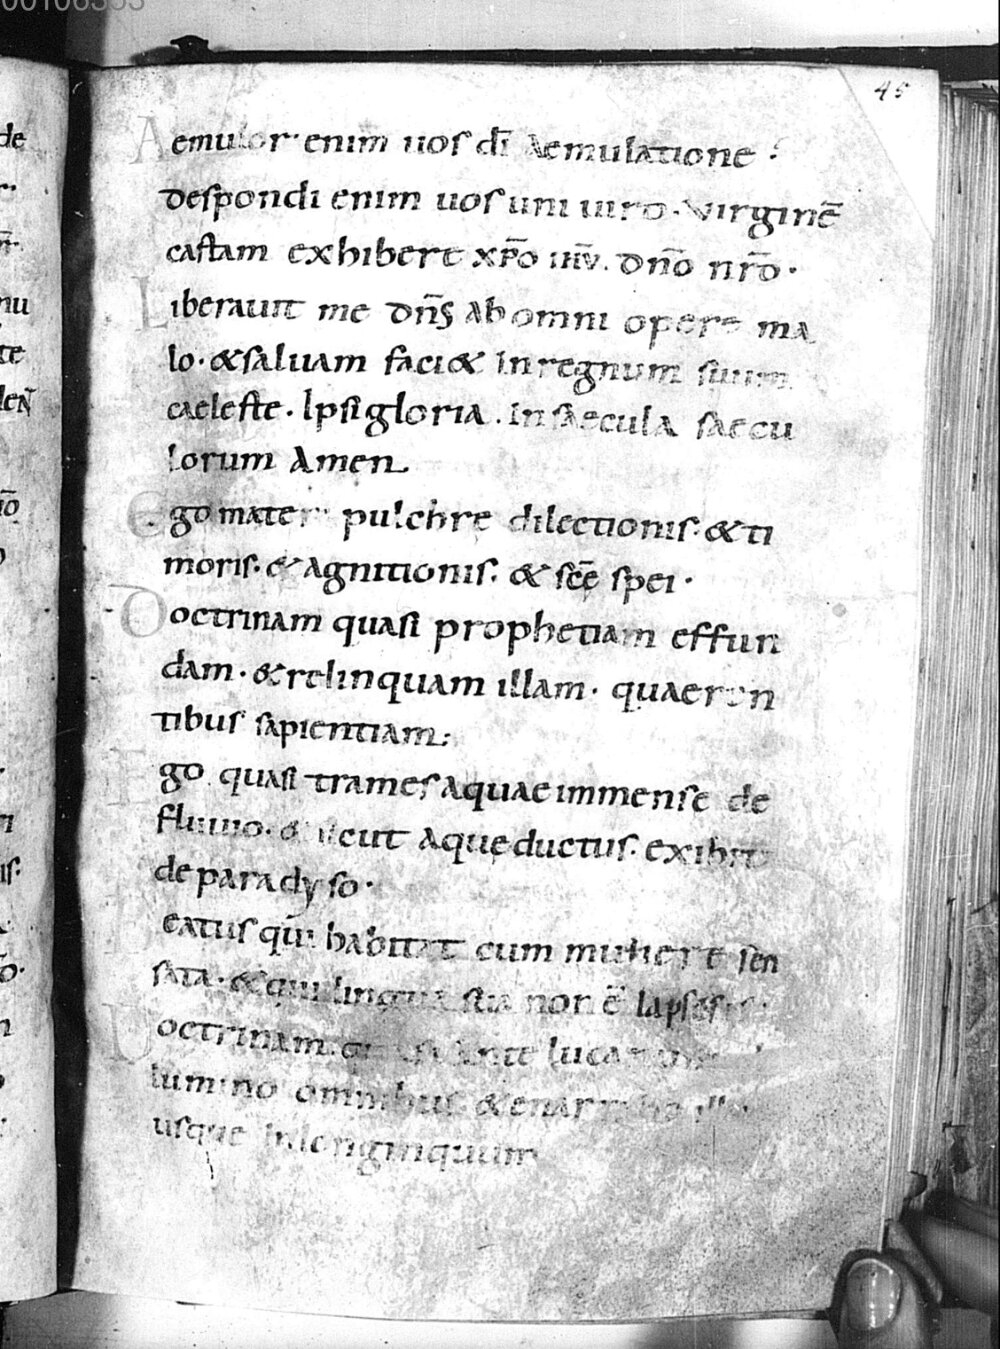 00106353
45
Aemulor enim uos dī Aemulatione
despondi enim uos uni uiro. virginē
castam exhibere xp̄o iħv. dn̄o nr̄o.
Liberauit me dn̄s Ab omni opere ma
lo. &saluam faci& In regnum suum
caeleste. Ipsi gloria. In sAecula sAecu
lorum Amen
Ego mater pulchre dilectionis. & ti
moris. & Agnitionis. & scē spei.
Doctrinam quasi prophetiam effun
dam. & relinquam illam. quaeren
tibus sapientiam;
Ego quasi trames Aquae immense de
fluuio. & sicut Aque ductus. exibit
de paradyso.
Beatus qui habitat cum muliere sen
sata. & qui lingua sua non ē lapsus
Doctrinam quasi Ante lucanum
lumino omnibus & enarrabo illam
usque In longinquum